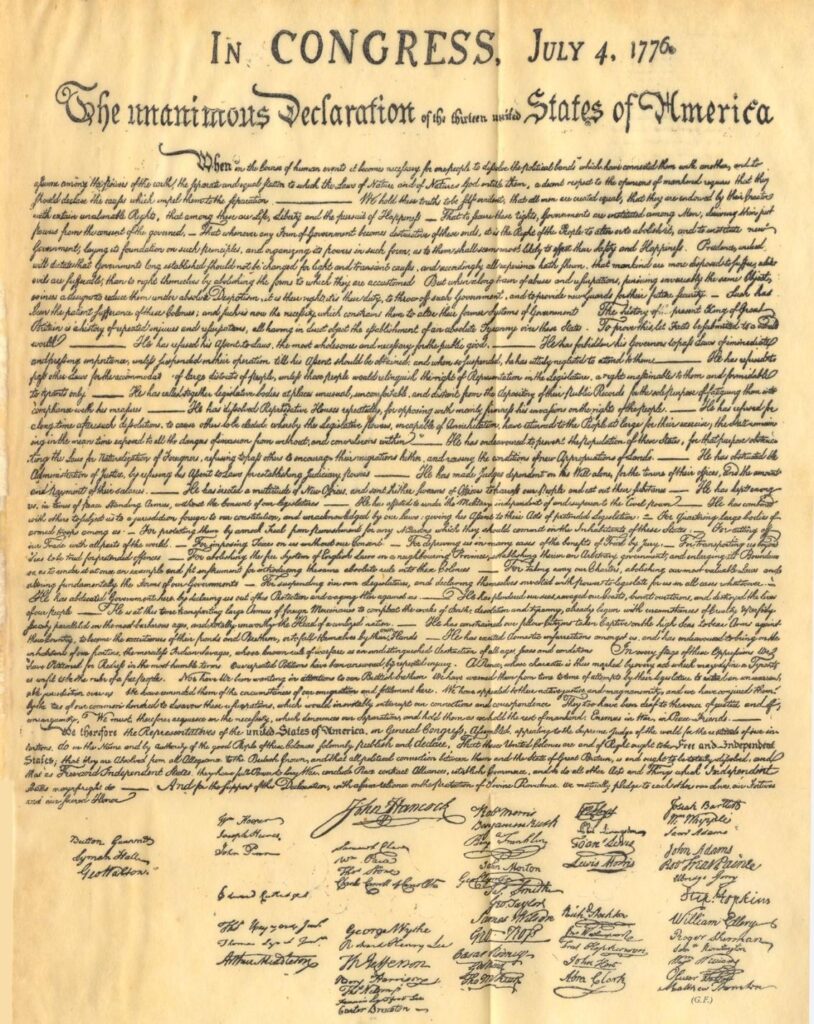 In CONGRESS, July 4, 1776.
The unanimous Declaration of the thirteen united States of America
When in the Course of human events it becomes necessary for one people to dissolve the political bands which have connected them with another, and to
assume among the powers of the earth, the separate and equal station to which the Laws of Nature and of Nature's God entitle them, a decent respect to the opinions of mankind requires that they
should declare the causes which impel them to the separation. We hold these truths to be self-evident, that all men are created equal, that they are endowed by their Creator
with certain unalienable Rights, that among these are Life, Liberty and the pursuit of Happiness — That to secure these rights, Governments are instituted among Men, deriving their just
powers from the consent of the governed, — That whenever any Form of Government becomes destructive of these ends, it is the Right of the People to alter or to abolish it, and to institute new
Government, laying its foundation on such principles, and organizing its powers in such form, as to them shall seem most likely to effect their Safety and Happiness. Prudence, indeed,
will dictate that Governments long established should not be changed for light and transient causes; and accordingly all experience hath shewn, that mankind are more disposed to suffer, while
evils are sufferable, than to right themselves by abolishing the forms to which they are accustomed. But when a long train of abuses and usurpations, pursuing invariably the same Object,
evinces a design to reduce them under absolute Despotism, it is their right, it is their duty, to throw off such Government, and to provide new Guards for their future security. — Such has
been the patient sufferance of these Colonies; and such is now the necessity which constrains them to alter their former Systems of Government. The history of present King of Great
Britain is a history of repeated injuries and usurpations, all having in direct object the establishment of an absolute Tyranny over these States. To prove this, let Facts be submitted to a candid
world. — He has refused his Assent to Laws, the most wholesome and necessary for the public good. — He has forbidden his Governors to pass Laws of immediate
and pressing importance, unless suspended in their operation till his Assent should be obtained; and when so suspended, he has utterly neglected to attend to them. — He has refused to
pass other Laws for the accommodation of large districts of people, unless those people would relinquish the right of Representation in the Legislature, a right inestimable to them and formidable
to tyrants only. — He has called together legislative bodies at places unusual, uncomfortable, and distant from the depository of their Public Records, for the sole purpose of fatiguing them into
compliance with his measures. — He has dissolved Representative Houses repeatedly, for opposing with manly firmness his invasions on the rights of the people. — He has refused for
a long time, after such dissolutions, to cause others to be elected; whereby the Legislative powers, incapable of Annihilation, have returned to the People at large for their exercise; the State remain-
ing in the mean time exposed to all the dangers of invasion from without, and convulsions within. — He has endeavoured to prevent the population of these States; for that purpose obstruc-
ting the Laws for Naturalization of Foreigners; refusing to pass others to encourage their migrations hither, and raising the conditions of new Appropriations of Lands. — He has obstructed the
Administration of Justice, by refusing his Assent to Laws for establishing Judiciary powers. — He has made Judges dependent on his Will alone, for the tenure of their offices, and the amount
and payment of their salaries. — He has erected a multitude of New Offices, and sent hither swarms of Officers to harrass our People, and eat out their substance. — He has kept among
us, in times of peace, Standing Armies without the Consent of our legislatures. — He has affected to render the Military independent of and superior to the Civil power. — He has combined
with others to subject us to a jurisdiction foreign to our constitution, and unacknowledged by our laws; giving his Assent to their Acts of pretended Legislation: — For Quartering large bodies of
armed troops among us: — For protecting them, by a mock Trial, from punishment for any Murders which they should commit on the Inhabitants of these States: — For cutting off
our Trade with all parts of the world: — For imposing Taxes on us without our Consent: — For depriving us in many cases, of the benefits of Trial by Jury: — For transporting us beyond
Seas to be tried for pretended offences — For abolishing the free System of English Laws in a neighbouring Province, establishing therein an Arbitrary government, and enlarging its Boundaries
so as to render it at once an example and fit instrument for introducing the same absolute rule into these Colonies: — For taking away our Charters, abolishing our most valuable Laws, and
altering fundamentally the Forms of our Governments: — For suspending our own Legislatures, and declaring themselves invested with power to legislate for us in all cases whatsoever. —
He has abdicated Government here, by declaring us out of his Protection and waging War against us. — He has plundered our seas, ravaged our Coasts, burnt our towns, and destroyed the lives
of our people. — He is at this time transporting large Armies of foreign Mercenaries to compleat the works of death, desolation and tyranny, already begun with circumstances of Cruelty & perfidy
scarcely paralleled in the most barbarous ages, and totally unworthy the Head of a civilized nation. — He has constrained our fellow Citizens taken Captive on the high Seas to bear Arms against
their Country, to become the executioners of their friends and Brethren, or to fall themselves by their Hands. — He has excited domestic insurrections amongst us, and has endeavoured to bring on the
inhabitants of our frontiers, the merciless Indian Savages, whose known rule of warfare, is an undistinguished destruction of all ages, sexes and conditions. In every stage of these Oppressions We
have Petitioned for Redress in the most humble terms: Our repeated Petitions have been answered by repeated injury. A Prince, whose character is thus marked by every act which may define a Tyrant,
is unfit to be the ruler of a free people. Nor have We been wanting in attentions to our Brittish brethren. We have warned them from time to time of attempts by their legislature to extend an unwarrant-
able jurisdiction over us. We have reminded them of the circumstances of our emigration and settlement here. We have appealed to their native justice and magnanimity, and we have conjured them
by the ties of our common kindred to disavow these usurpations, which, would inevitably interrupt our connections and correspondence. They too have been deaf to the voice of justice and of
consanguinity. We must, therefore, acquiesce in the necessity, which denounces our Separation, and hold them, as we hold the rest of mankind, Enemies in War, in Peace Friends. —
We therefore the Representatives of the united States of America, in General Congress, Assembled, appealing to the Supreme Judge of the world for the rectitude of our in-
tentions, do, in the Name, and by Authority of the good People of these Colonies, solemnly publish and declare, That these United Colonies are, and of Right ought to be Free and Independent
States; that they are Absolved from all Allegiance to the British Crown, and that all political connection between them and the State of Great Britain, is and ought to be totally dissolved; and
that as Free and Independent States, they have full Power to levy War, conclude Peace, contract Alliances, establish Commerce, and to do all other Acts and Things which Independent
States may of right do. — And for the support of this Declaration, with a firm reliance on the protection of Divine Providence, we mutually pledge to each other our Lives, our Fortunes
and our sacred Honor
Button Gwinnett
Lyman Hall
Geo Walton.
Wm Hooper
Joseph Hewes
John Penn
Edward Rutledge
Thos Heyward Junr
Thomas Lynch Junr
Arthur Middleton
John Hancock
Samuel Chase
Wm Paca
Thos Stone
Charles Carroll of Carrollton
George Wythe
Richard Henry Lee
Th Jefferson
Benj Harrison
Thos Nelson jr
Francis Lightfoot Lee
Carter Braxton
Robt Morris
Benjamin Rush
Benj Franklin
John Morton
Geo Clymer
Jas Smith
Geo Taylor
James Wilson
Geo Ross
Caesar Rodney
Geo Read
Tho M:Kean
Wm Floyd
Phil Livingston
Frans Lewis
Lewis Morris
Richd Stockton
Jno Witherspoon
Fras Hopkinson
John Hart
Abra Clark
Josiah Bartlett
Wm Whipple
Saml Adams
John Adams
Robt Treat Paine
Elbridge Gerry
Step. Hopkins
William Ellery
Roger Sherman
Saml Huntington
Wm Williams
Oliver Wolcott
Matthew Thornton
(G.F.)